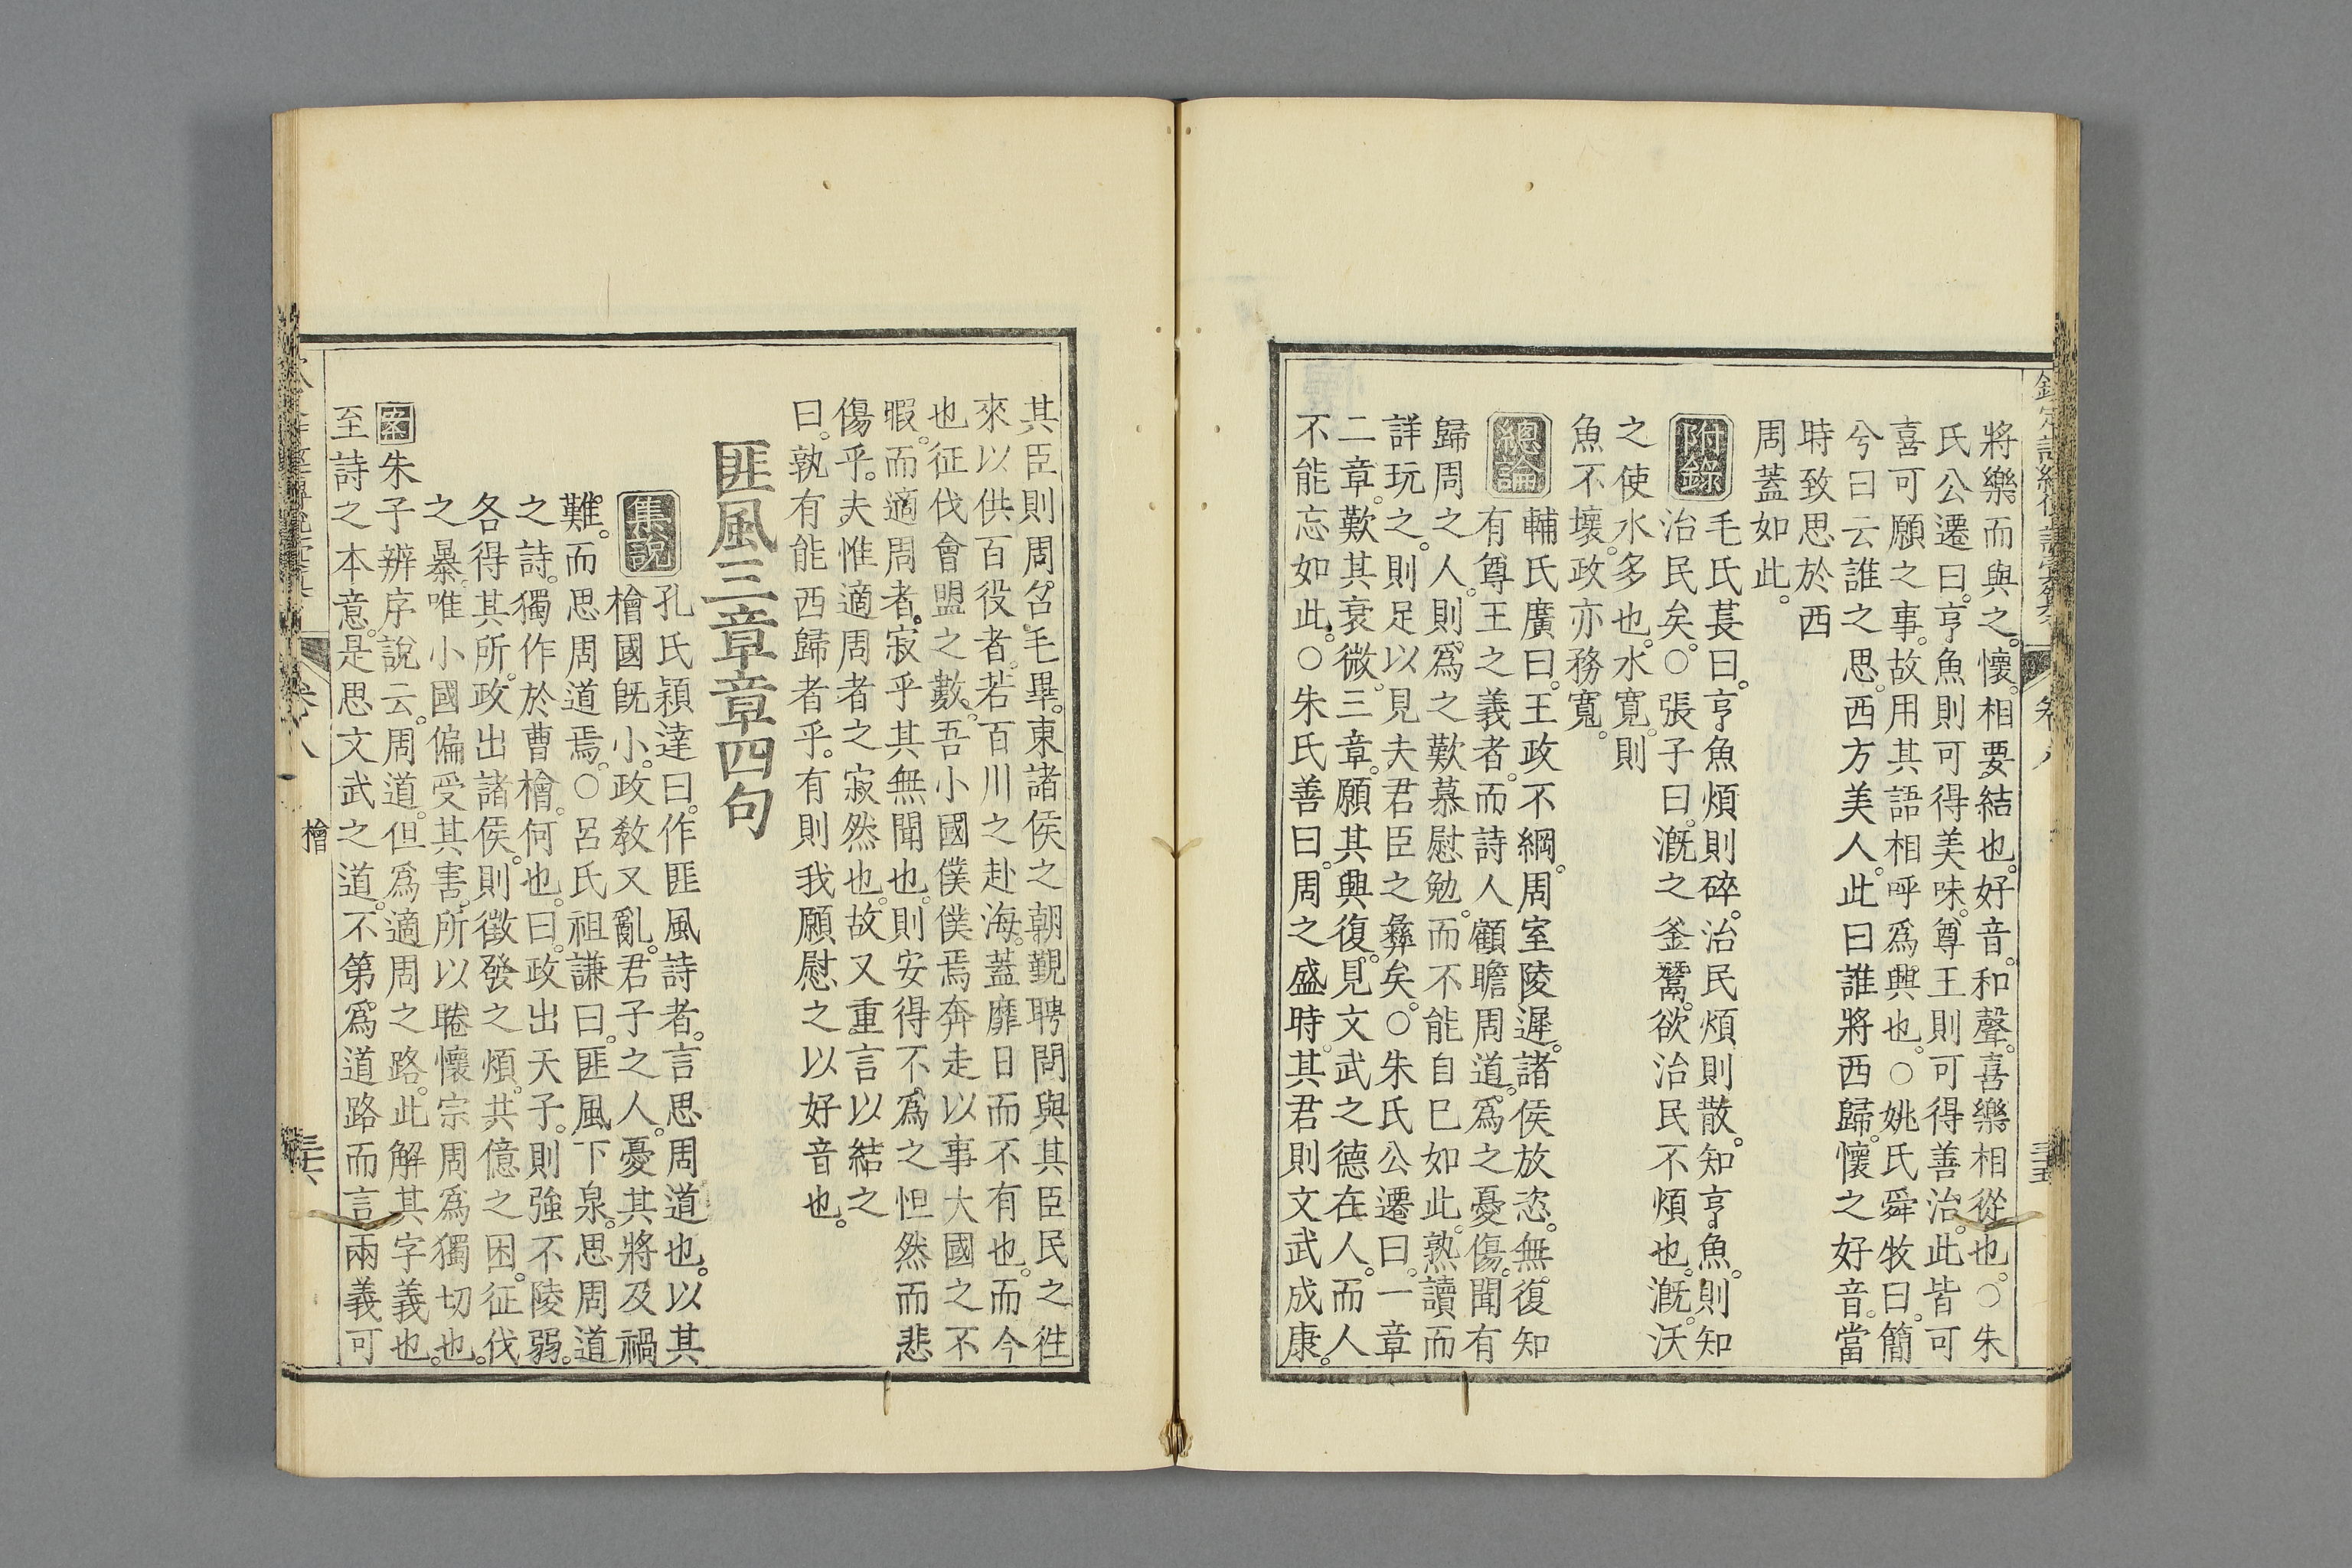 將樂而與之懷相要結也好音和聲喜樂相從也○朱
氏公遷曰亨魚則可得美味尊王則可得善治此皆可
喜可願之事故用其語相呼爲興也○姚氏舜牧曰簡
兮曰云誰之思西方美人此曰誰將西歸懷之好音當
時致思於西
周蓋如此
附錄
毛氏萇曰亨魚煩則碎治民煩則散知亨魚則知
治民矣○張子曰漑之釜鬵欲治民不煩也漑沃
之使水多也水寬則
魚不壞政亦務寬
總論
輔氏廣曰王政不綱周室陵遲諸侯放恣無復知
有尊王之義者而詩人顧瞻周道爲之憂傷聞有
歸周之人則爲之歎慕慰勉而不能自已如此熟讀而
詳玩之則足以見夫君臣之彝矣○朱氏公遷曰一章
二章歎其衰微三章願其興復見文武之德在人而人
不能忘如此○朱氏善曰周之盛時其君則文武成康
其臣則周召毛畢東諸侯之朝覲聘問與其臣民之徃
來以供百役者若百川之赴海蓋靡日而不有也而今
也征伐會盟之數吾小國僕僕焉奔走以事大國之不
暇而適周者寂乎其無聞也則安得不爲之怛然而悲
傷乎夫惟適周者之寂然也故又重言以結之
曰孰有能西歸者乎有則我願慰之以好音也
匪風三章章四句
集說
孔氏穎達曰作匪風詩者言思周道也以其
檜國旣小政教又亂君子之人憂其將及禍
難而思周道焉○呂氏祖謙曰匪風下泉思周道
之詩獨作於曹檜何也曰政出天子則強不陵弱
各得其所政出諸侯則徵發之煩共億之困征伐
之暴唯小國偏受其害所以睠懷宗周爲獨切也
案朱子辨序說云周道但爲適周之路此解其字義也
至詩之本意是思文武之道不第爲道路而言兩義可
卷八
檜